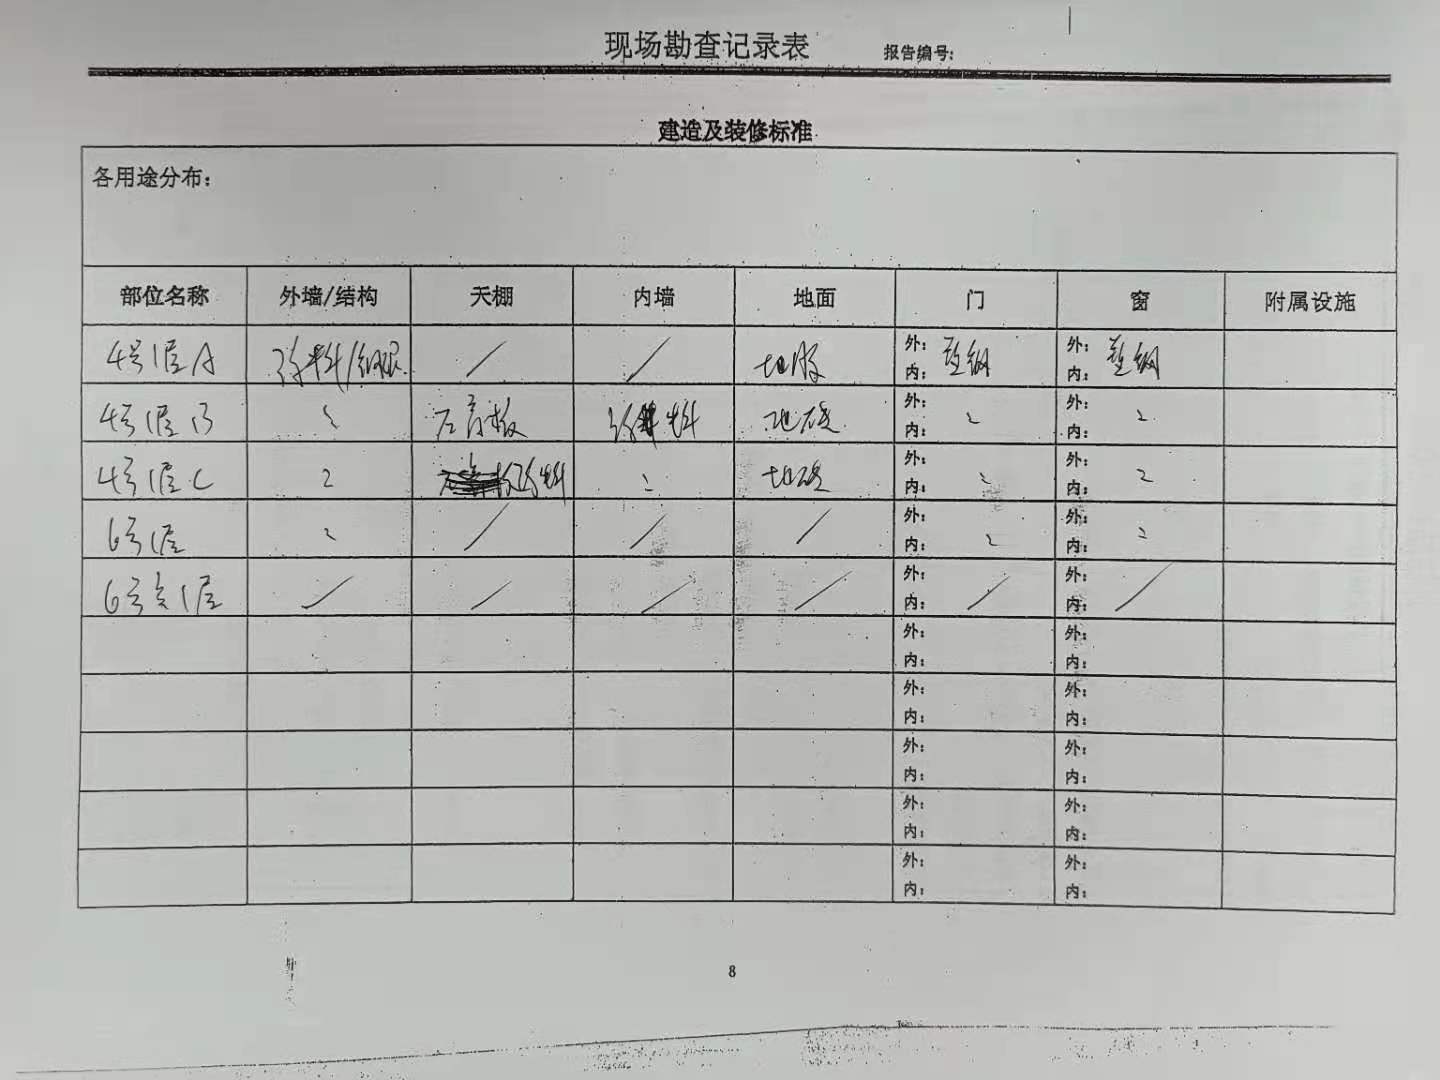 现场勘查记录表
报告编号:
建造及装修标准
各用途分布:
部位名称 外墙/结构 天棚 内墙 地面 门 窗 附属设施
4号1层A 涂料/ / / 外: 塑钢 内: 外: 塑钢 内:
4号1层B 〃 石膏板 涂料 地砖 外: 内: 〃 外: 内: 〃
4号1层C 〃 涂料 〃 地砖 外: 内: 〃 外: 内: 〃
6号1层 〃 / / / 外: 内: 〃 外: 内: 〃
6号负1层 / / / / 外: 内: / 外: 内: /
外: 内: 外: 内:
外: 内: 外: 内:
外: 内: 外: 内:
外: 内: 外: 内:
外: 内: 外: 内:
8